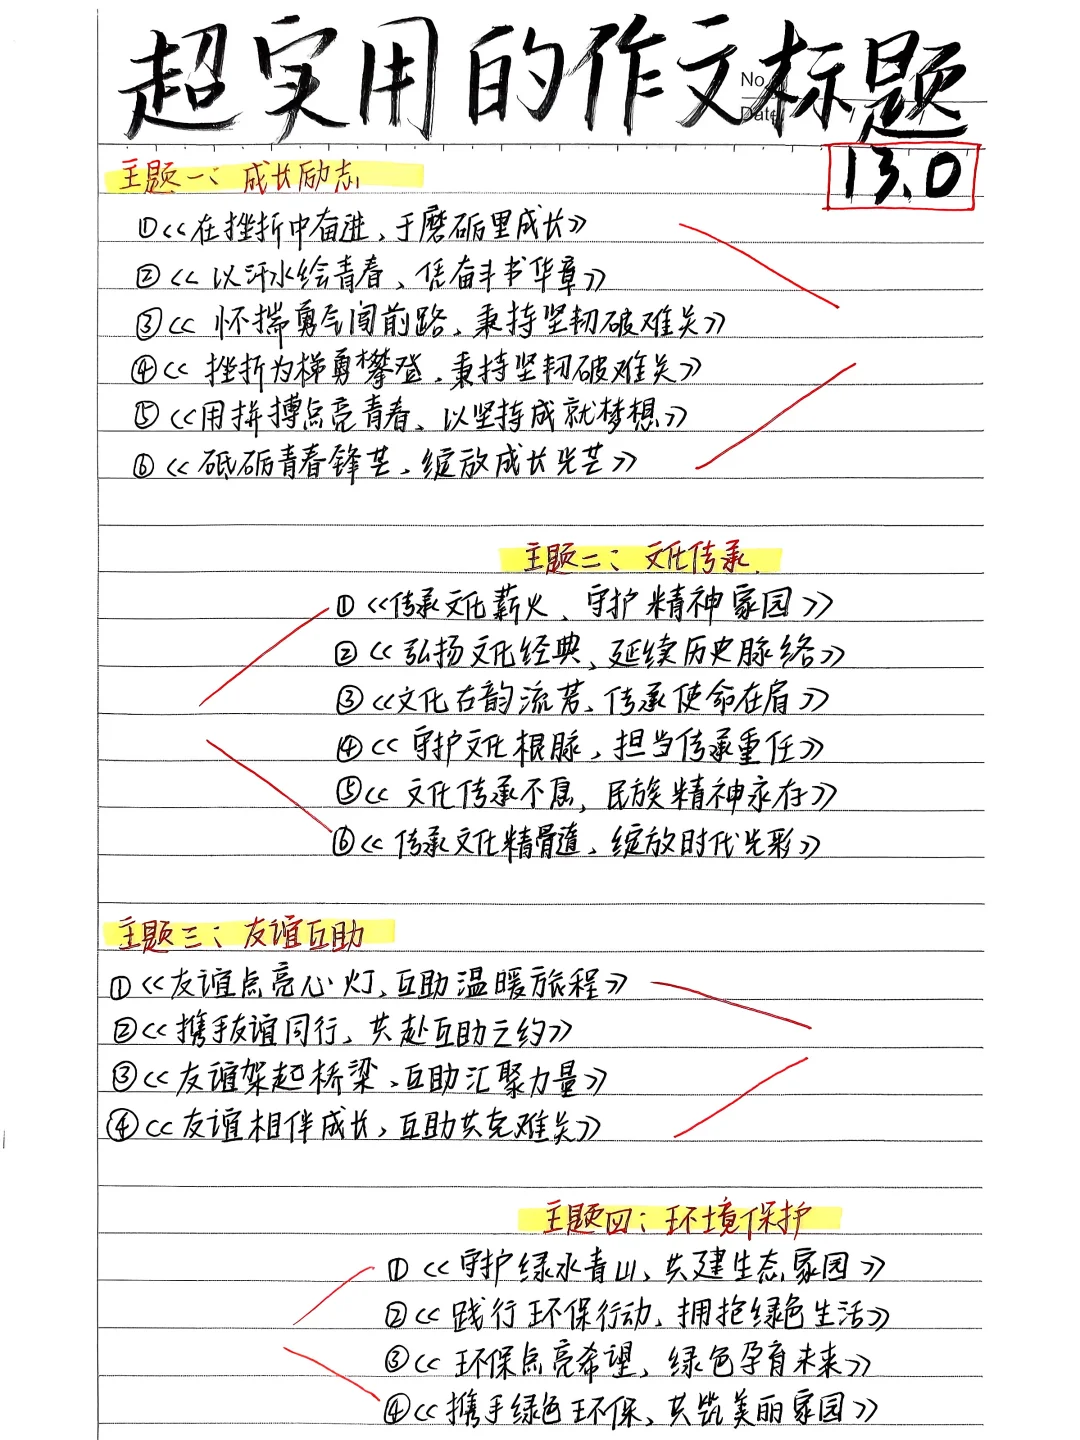 超实用的作文标题
No.
Date
13.0
主题一：成长励志
①《在挫折中奋进，于磨砺里成长》
②《以汗水绘青春，凭奋斗书华章》
③《怀揣勇气闯前路，秉持坚韧破难关》
④《挫折为梯勇攀登，秉持坚韧破难关》
⑤《用拼搏点亮青春，以坚持成就梦想》
⑥《砥砺青春锋芒，绽放成长光芒》
主题二：文化传承
①《传承文化薪火，守护精神家园》
②《弘扬文化经典，延续历史脉络》
③《文化古韵流芳，传承使命在肩》
④《守护文化根脉，担当传承重任》
⑤《文化传承不息，民族精神永存》
⑥《传承文化精髓，绽放时代光彩》
主题三：友谊互助
①《友谊点亮心灯，互助温暖旅程》
②《携手友谊同行，共赴互助之约》
③《友谊架起桥梁，互助汇聚力量》
④《友谊相伴成长，互助共克难关》
主题四：环境保护
①《守护绿水青山，共建生态家园》
②《践行环保行动，拥抱绿色生活》
③《环保点亮希望，绿色孕育未来》
④《携手绿色环保，共筑美丽家园》